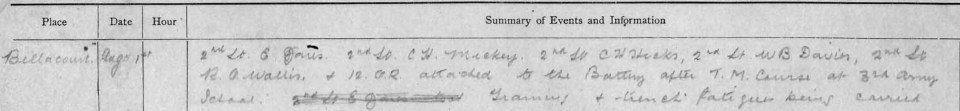 Place Date Hour Summary of Events and Information
Bellacourt. Aug 1st 2nd Lt. E Jones. 2nd Lt. C.H. Mickey. 2nd Lt C H Hicks, 2nd Lt W B Davies, 2nd Lt
R. O. Wallis, & 12. O.R. attached to the Battery after T. M. Course at 3rd Army
School. 2nd Lt E Training & trench fatigues being carried